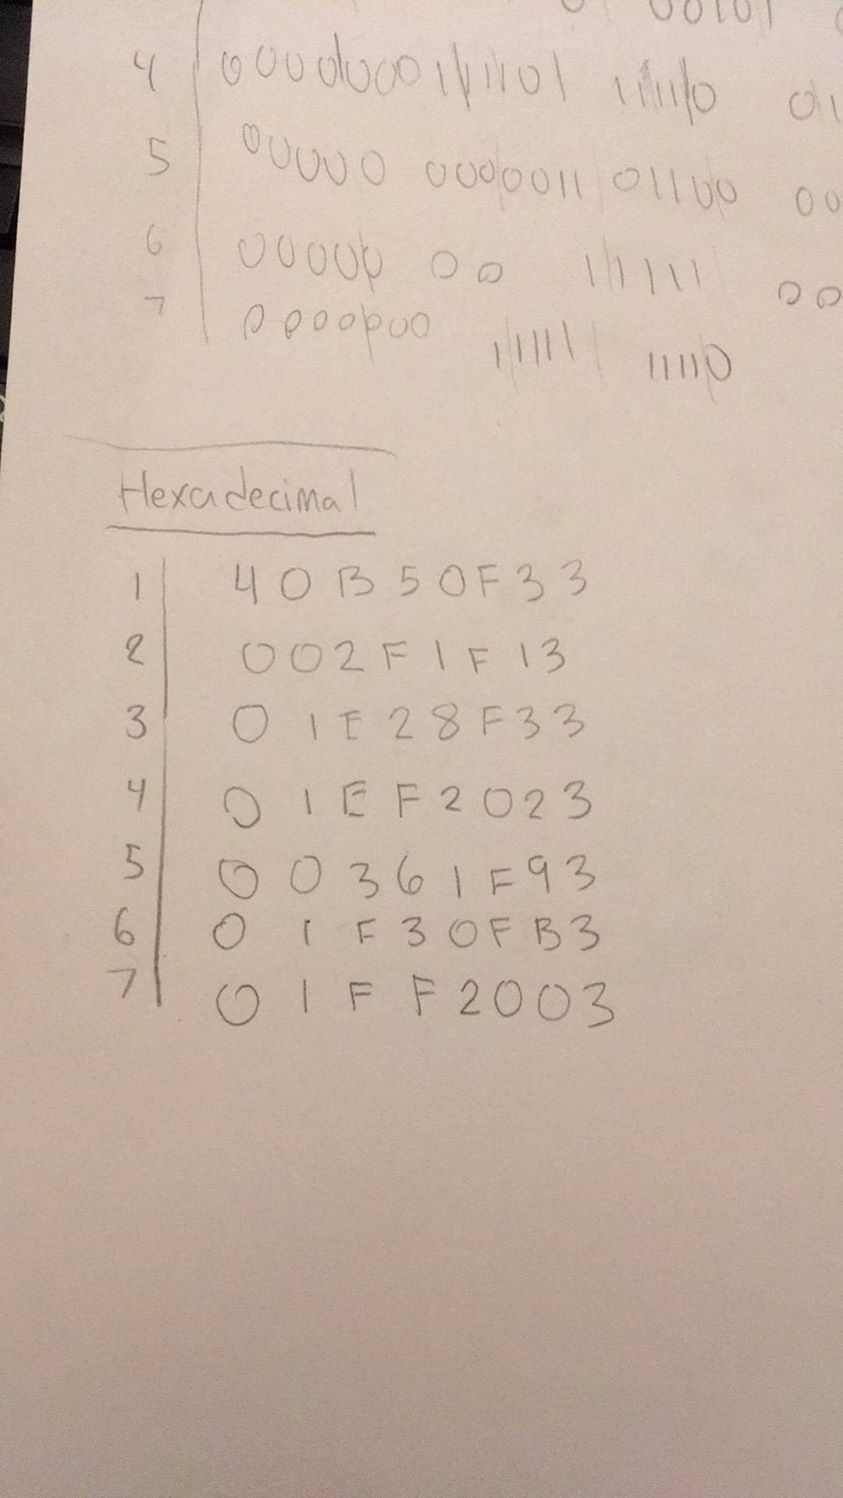 00101
4 0000000111101 111110 01
5 00000 0000011 01100 00
6 00000 00 11111 00
7 0000000 11111 11110
Hexadecimal
1 40B50F33
2 002F1F13
3 01E28F33
4 01EF2023
5 00361F93
6 01F30FB3
7 01FF2003